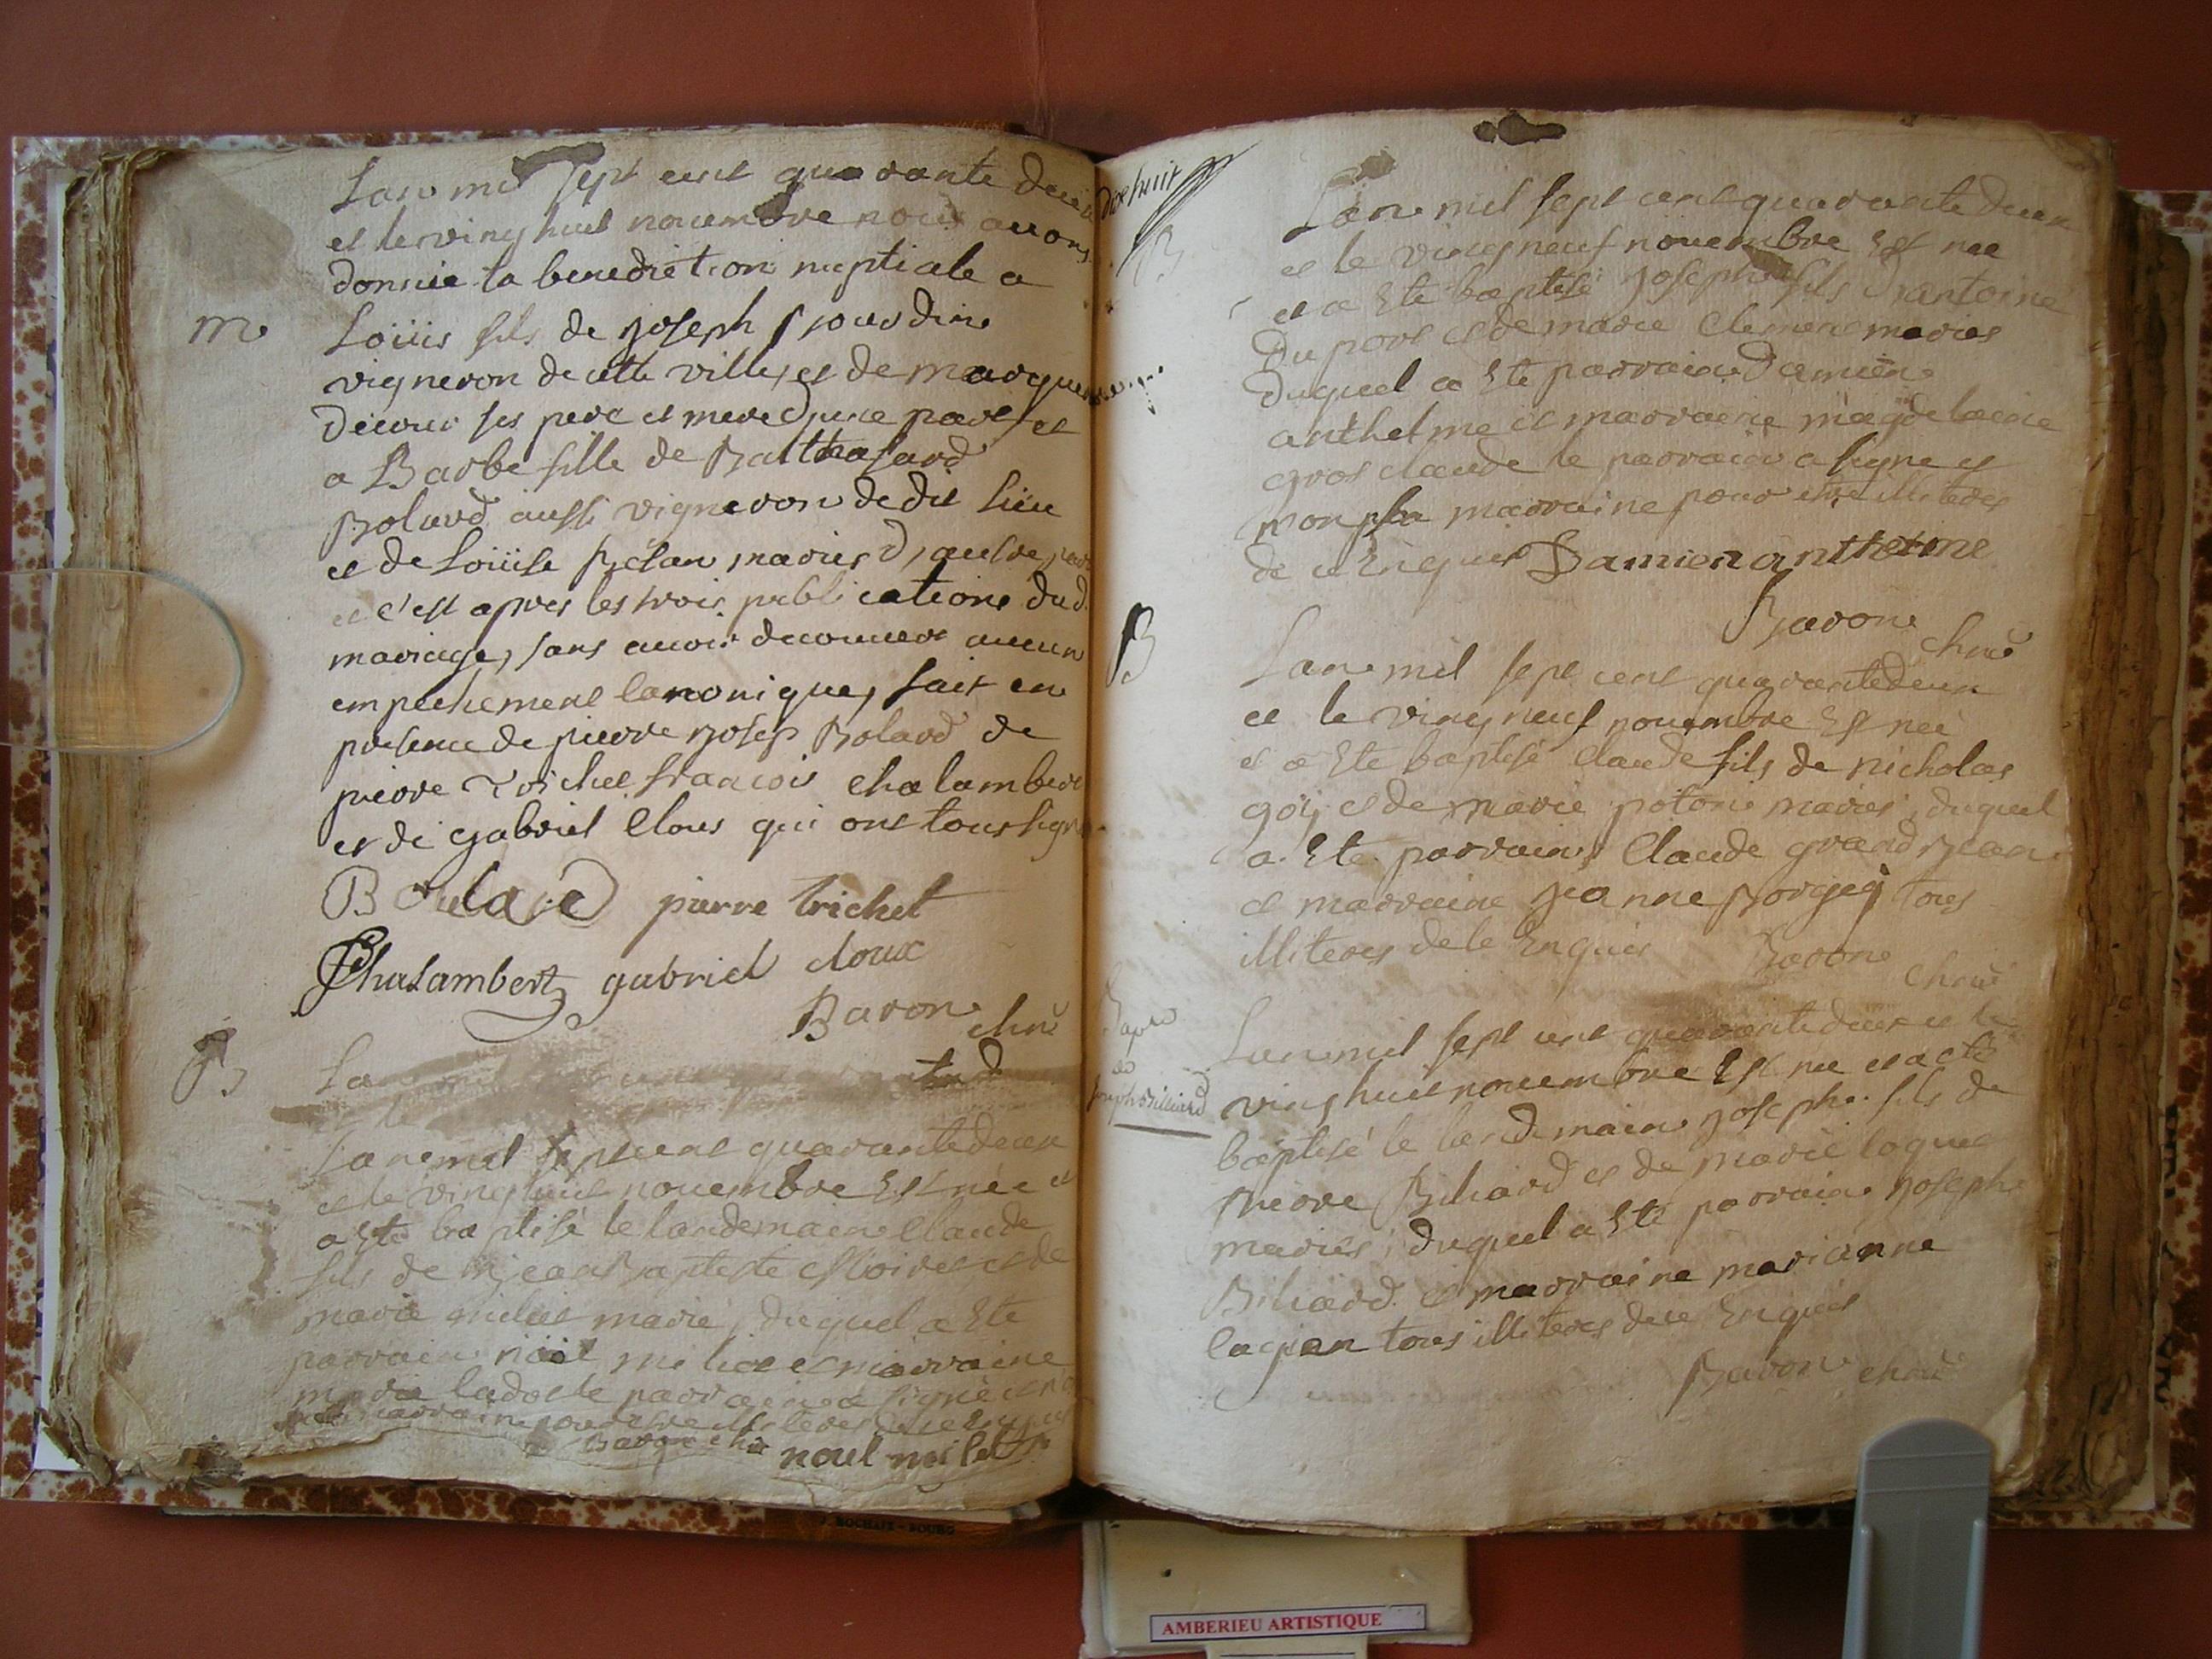 Lan mil sept cent quarante deux
et le ving huit nouembre nous auons
donnée la benediction nuptiale a
m Loüis fils de Joseph Jourdine
vigneron de cette ville, et de marque
ses pere et mere d'une part et
a Barbe fille de Balthasard
Bolard aussi vigneron dedit lieu
et de Loüise maries d'autre part
et c'est apres les trois publications dud.
mariage, sans auoir decouuert aucun
empechement canonique, fait en
presence de pierre Josep Bolard de
pierre Trichet francois Chalambert
et de gabriel Clous qui ont tous signé
Boulard pierre trichet
Chalambert gabriel cloux
Baron chne
B Lan
Lan mil sept cent quarante deux
et le ving huit nouembre Est née et
a Ete baptisé le landemain Claude
fils de Jean Baptiste et de
marie milliet marie, duquel a Ete
parrain noël miliet et marraine
marie parrain a signé et non
marraine pour estre illiteres de ce Enquis
Baron chne noul milet
dixhuit
B Lan mil sept cent quarante deux
et le ving neuf nouembre Est nee
et a Ete baptisé Joseph fils d'antoine
Du port et de marie Clement maries
Duquel a Ete parrain Damien
anthelme et marraine magdelaine
gros claude le parrain a signe et
non pas la marraine pour être illiteres
de ce Enquis Damien anthelme
Baron chne
B Lan mil sept cent quarante deux
et le ving neuf nouembre Est neé
et a Ete baptisé Claude fils de nicholas
goÿ et de marie poton maries, duquel
a Ete parrain Claude grand Jean
et marraine Jeanne Borgeÿ tous
illiteres de le Enquis Baron
chne
Bapt
de
Joseph Billiard
Lan mil sept cent quarante deux et le
ving huit nouembre Est ne et a ete
baptisé le landemain Joseph fils de
Pierre Biliard et de marie loquet
maries, duquel a Eté parrain Joseph
Biliard et marraine marianne
tous illiteres de ce Enquis
Baron chne
J. ROCHAIX - BOURG
AMBERIEU ARTISTIQUE